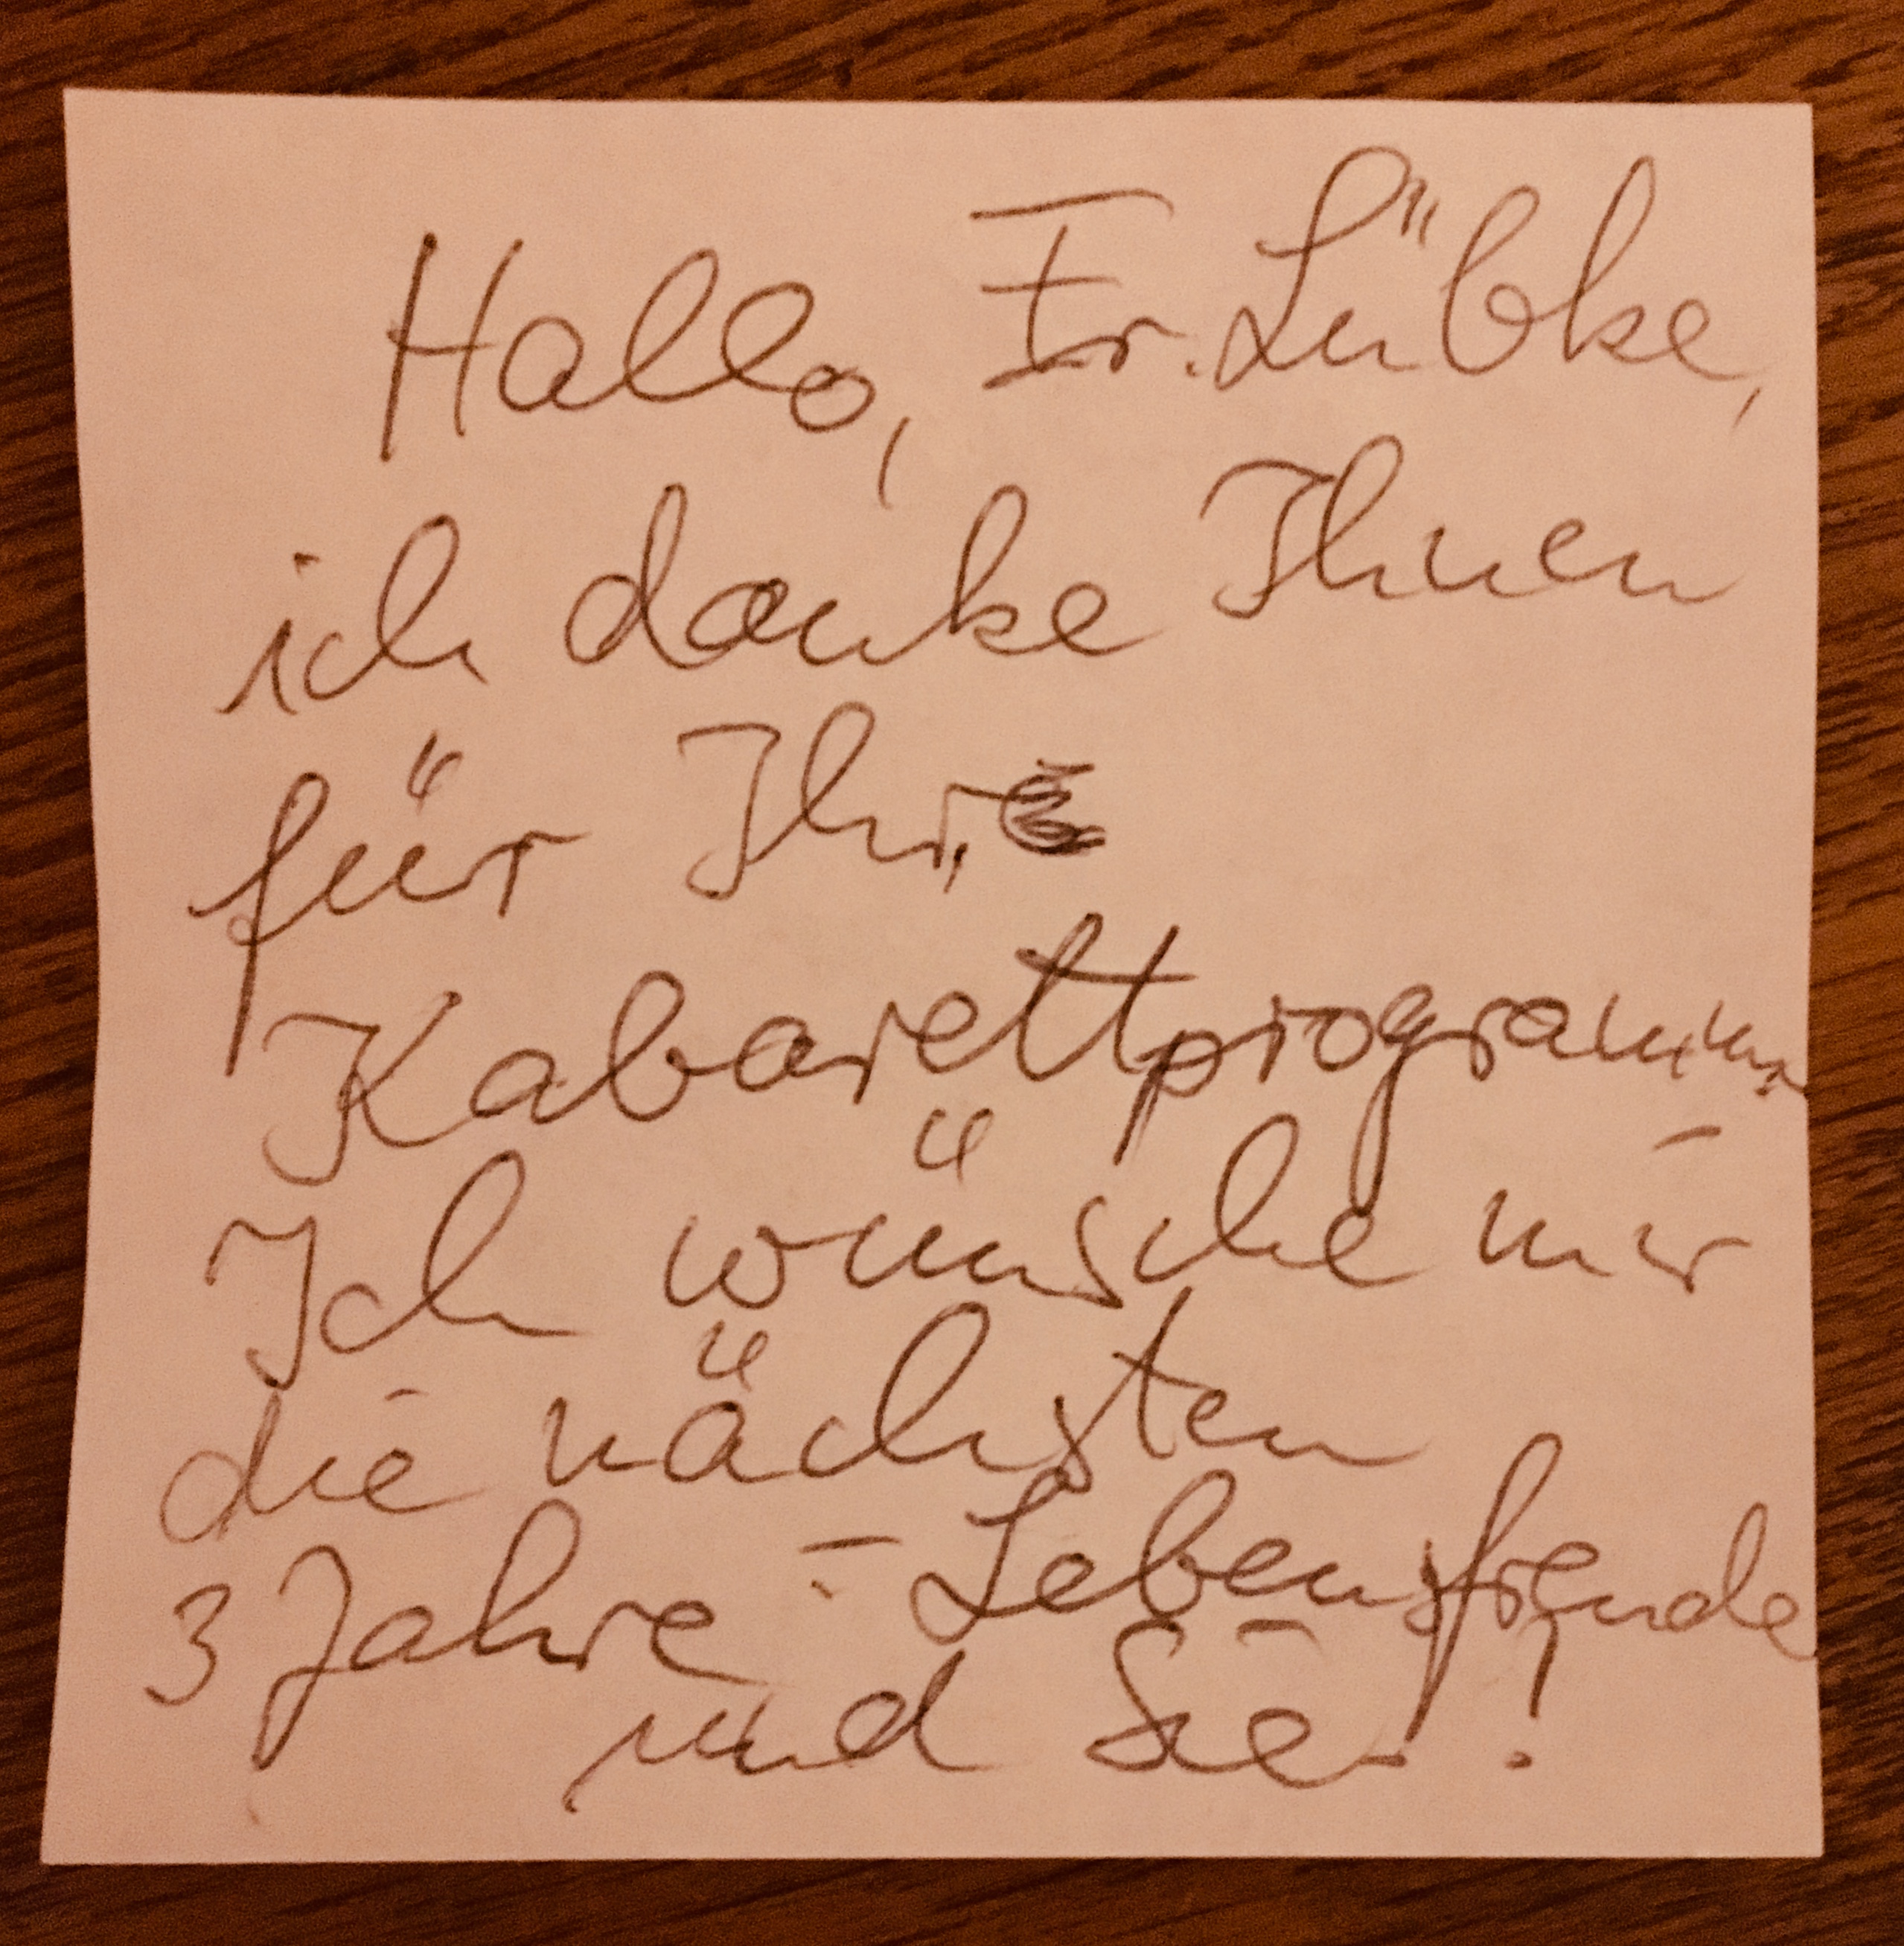 Hallo, Fr. Lübke,
ich danke Ihnen
für Ihr
Kabarettprogramm.
Ich wünsche mir
die nächsten
3 Jahre - Lebensfreude
und Sie!